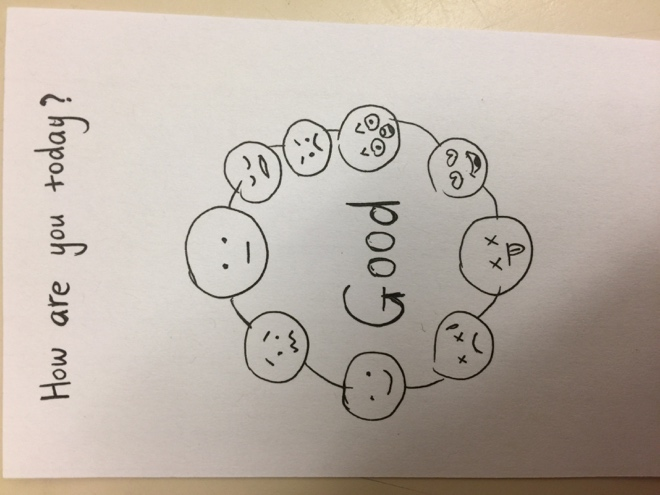 How are you today?
Good